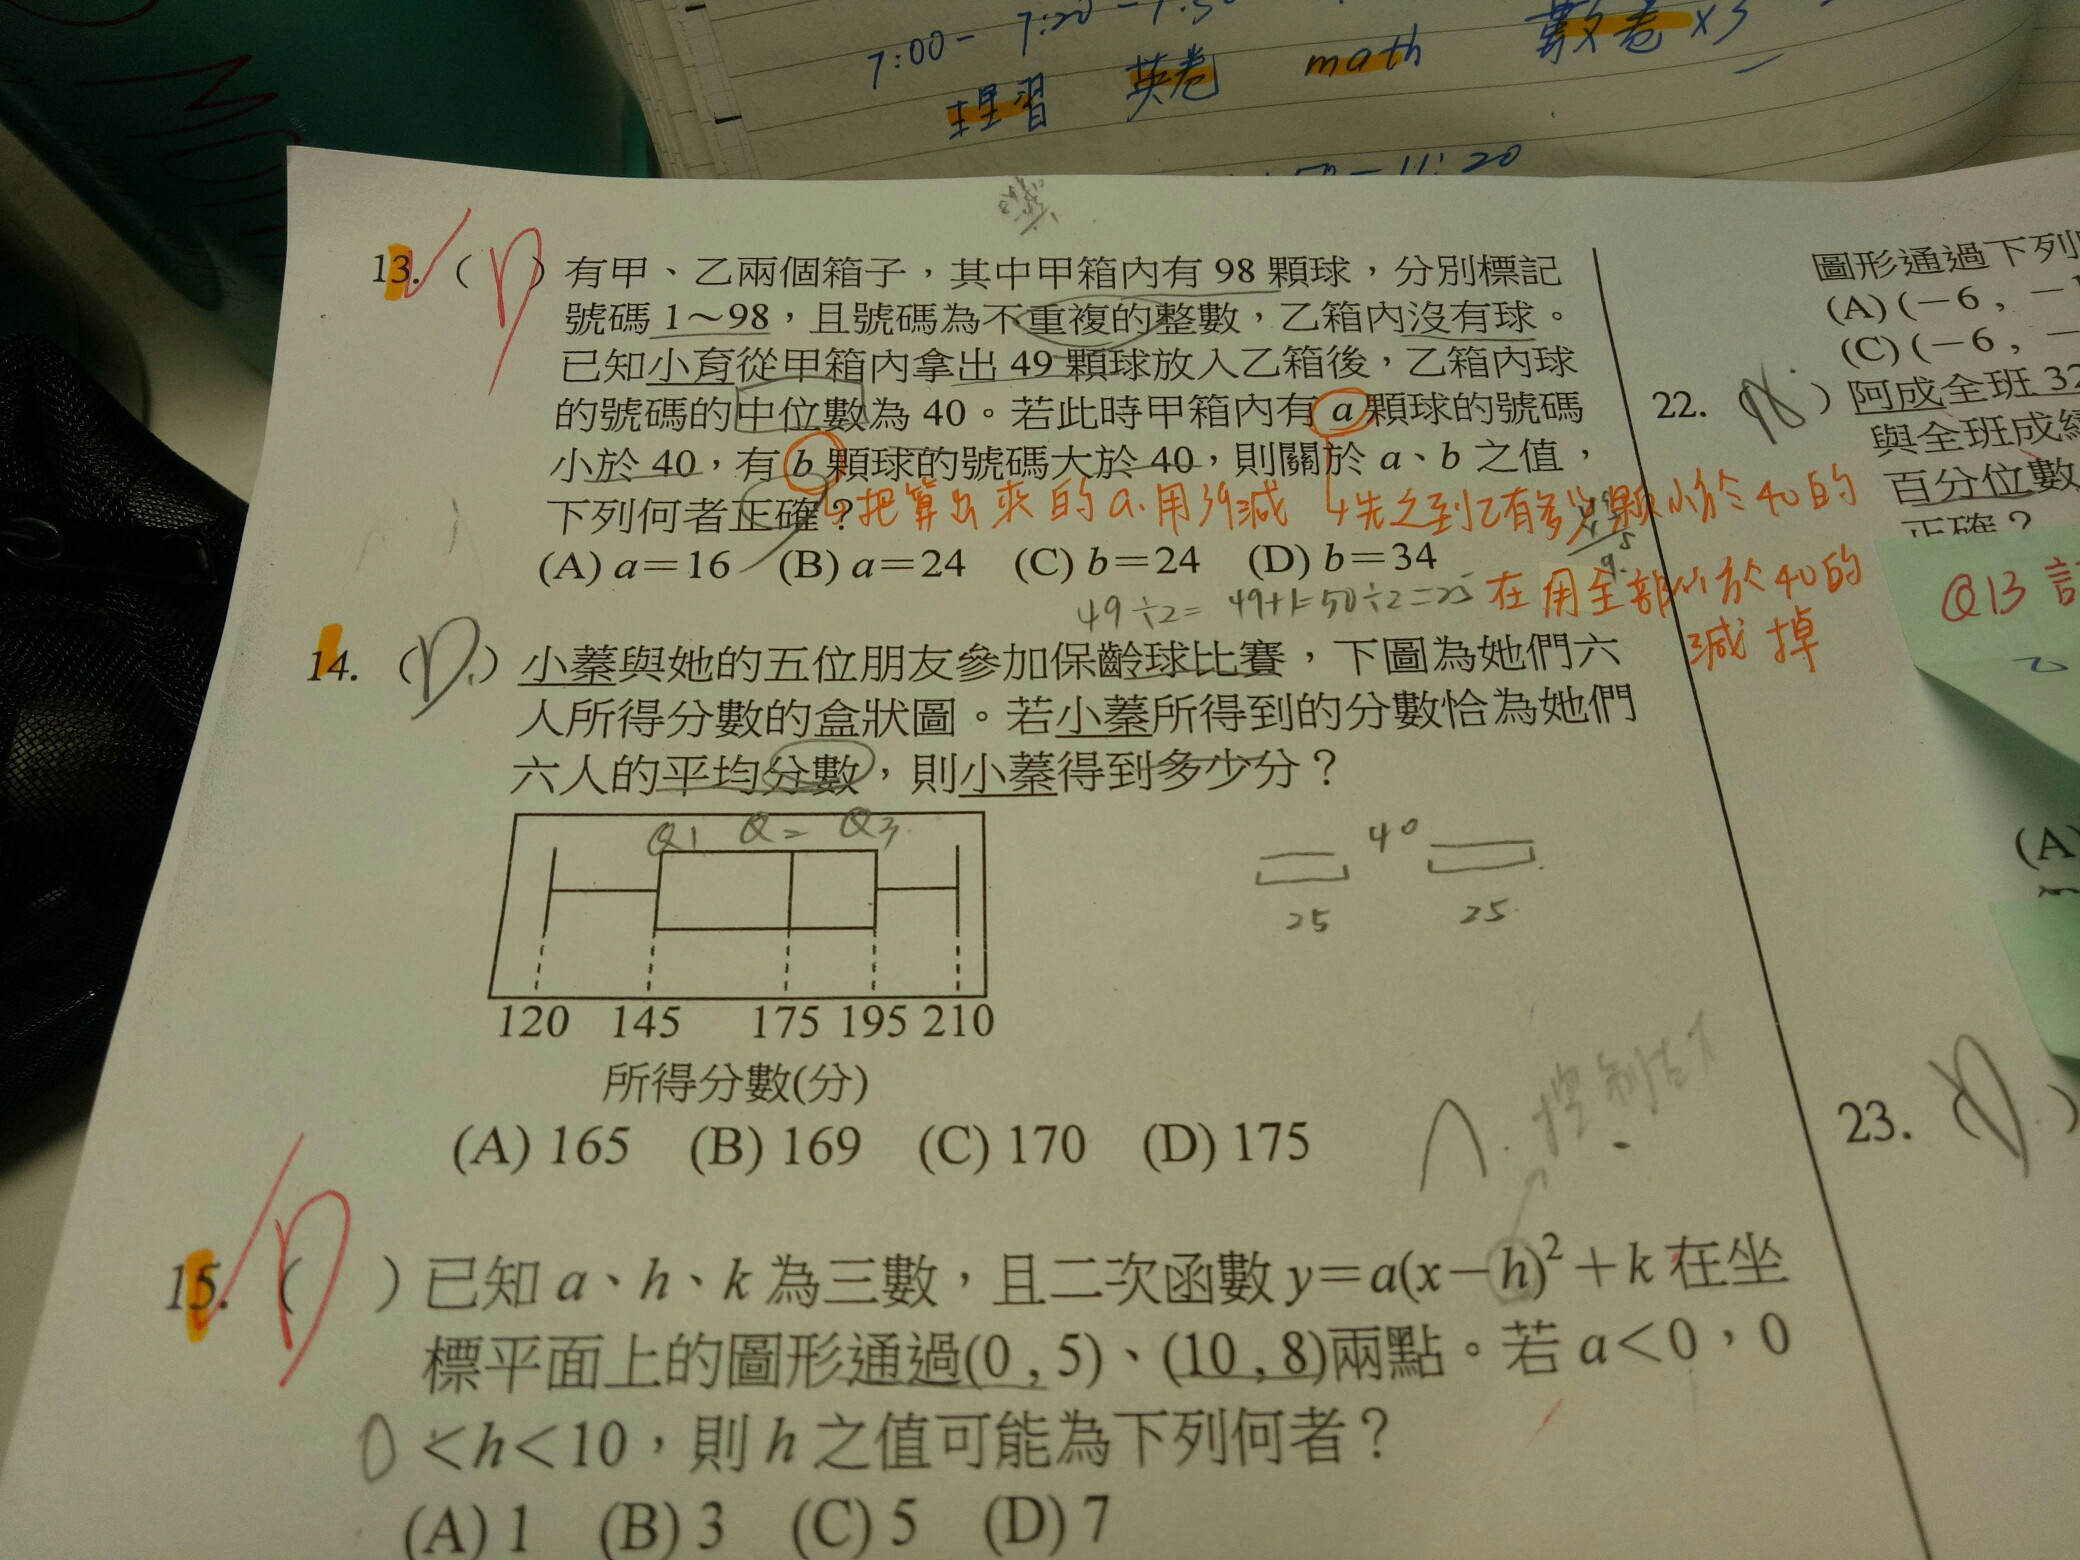 7:00-7:20-7:50
理習 英卷 math 數卷x3
11:20
13. (D) 有甲、乙兩個箱子，其中甲箱內有 98 顆球，分別標記
號碼 1～98，且號碼為不重複的整數，乙箱內沒有球。
已知小育從甲箱內拿出 49 顆球放入乙箱後，乙箱內球
的號碼的中位數為 40。若此時甲箱內有 a 顆球的號碼
小於 40，有 b 顆球的號碼大於 40，則關於 a、b 之值，
下列何者正確？
把算出來的a.用39減
先之到乙有多少顆小於40的
(A) a＝16 (B) a＝24 (C) b＝24 (D) b＝34
在用全部小於40的
減掉
49÷2= 49+1=50÷2=25
14. (D.) 小蓁與她的五位朋友參加保齡球比賽，下圖為她們六
人所得分數的盒狀圖。若小蓁所得到的分數恰為她們
六人的平均分數，則小蓁得到多少分？
Q1 Q2 Q3
40
25 25
120 145 175 195 210
所得分數(分)
(A) 165 (B) 169 (C) 170 (D) 175
控制左右
15. (D) 已知 a、h、k 為三數，且二次函數 y＝a(x－h)²＋k 在坐
標平面上的圖形通過(0 , 5)、(10 , 8)兩點。若 a＜0，0
0 ＜h＜10，則 h 之值可能為下列何者？
(A) 1 (B) 3 (C) 5 (D) 7
圖形通過下列
(A) (－6 , －
(C) (－6 , －
22. ) 阿成全班 32
與全班成績
百分位數
正確？
Q13 訂
乙
(A)
23. )